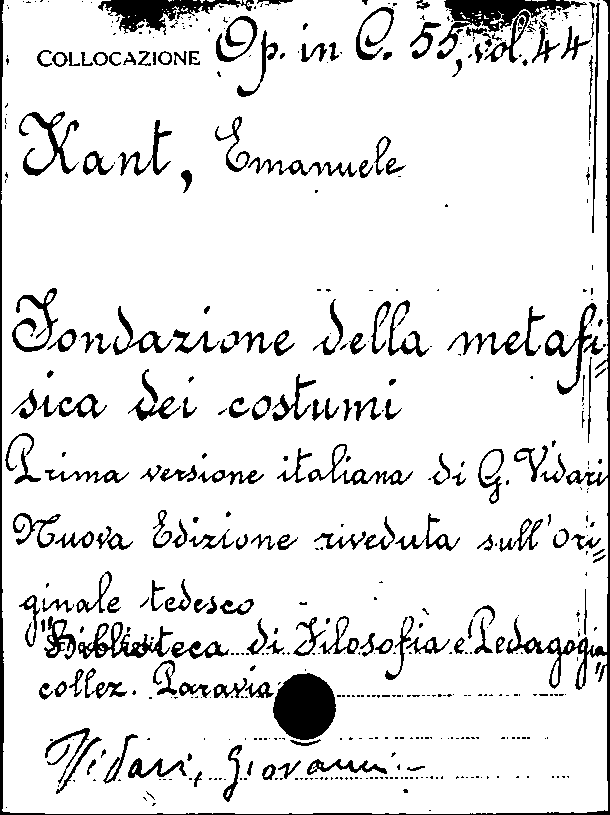 COLLOCAZIONE Op. in C. 55, vol. 44
Kant, Emanuele
Fondazione della metafi=
sica dei costumi
Prima versione italiana di G. Vidari
Nuova Edizione riveduta sull'Ori=
ginale tedesco
"Biblioteca di Filosofia e Pedagogia"
collez. Paravia
Vidari, Giovanni